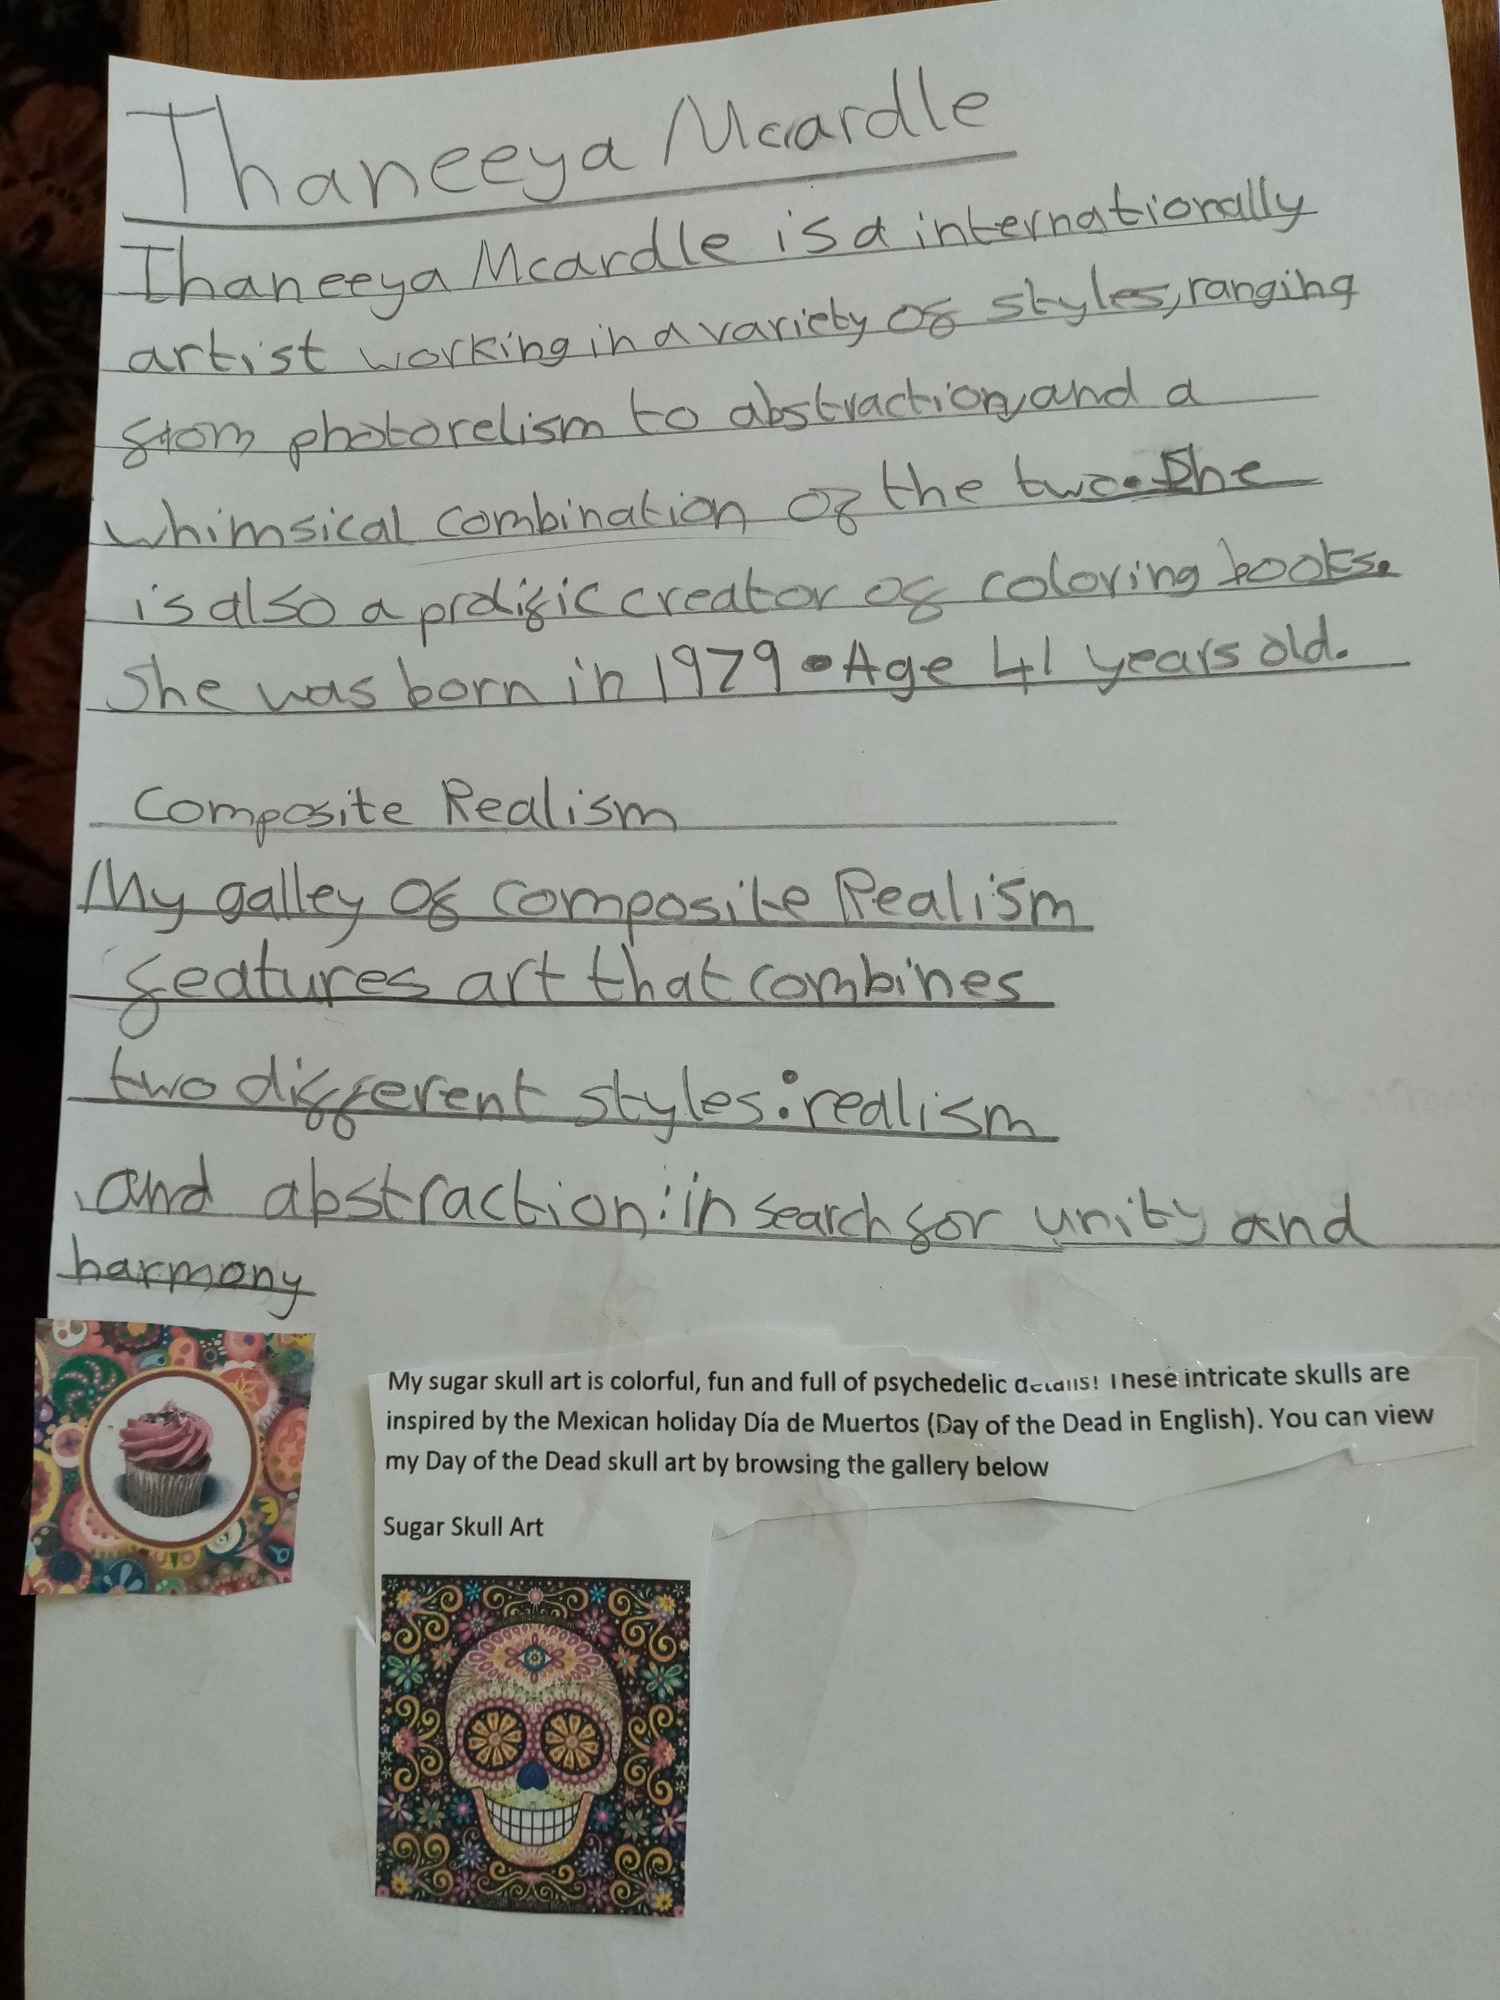 Thaneeya Mcardle
Thaneeya Mcardle is a internationally
artist working in a variety of styles, ranging
from photorelism to abstraction, and a
whimsical combination of the two. She
is also a prolific creator of coloring books.
She was born in 1979. Age 41 years old.
Composite Realism
My galley of composite Realism
features art that combines
two different styles: realism
and abstraction: in search for unity and
harmony
My sugar skull art is colorful, fun and full of psychedelic details! These intricate skulls are
inspired by the Mexican holiday Día de Muertos (Day of the Dead in English). You can view
my Day of the Dead skull art by browsing the gallery below
Sugar Skull Art